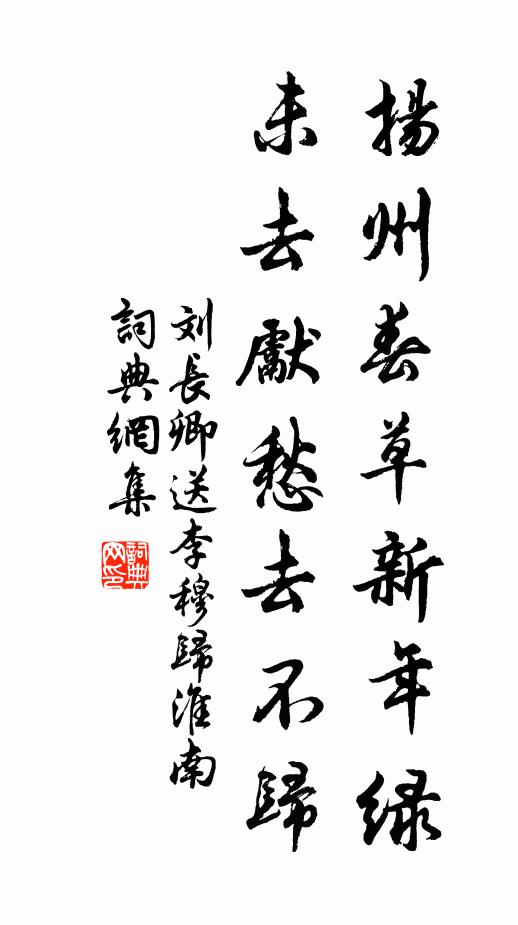 揚州春草新年緑
未去獻愁去不歸
刘長卿送李穆歸淮南
詞典網集
詞典网印